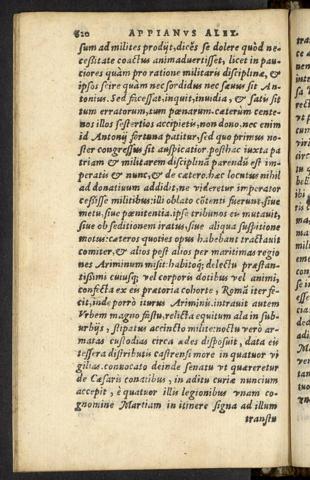 620 APPIANVS ALEX.
sum ad milites prodijt, dicẽs se dolere quòd ne-
cessitate coactus animaduertisset, licet in pau-
ciores quàm pro ratione militaris disciplinæ, &
ipsos scire quàm nec sordidus nec sæuus sit An-
tonius. Sed facessat, inquit, inuidia, & satis sit
tum erratorum, tum pœnarum. cæterùm cente-
nos illos sestertios accipietis, non dono. nec enim
id Antonij fortuna patitur, sed quo primus no-
ster congressus sit auspicatior. posthac iuxta pa
triam & militarem disciplinã parendũ est im-
peratis & nunc, & de cætero. hæc locutus nihil
ad donatiuum addidit, ne videretur imperator
cessisse militibus: illi oblato cõtenti fuerunt, siue
metu, siue pœnitentia. ipse tribunos eũ mutauit,
siue ob seditionem iratus, siue aliqua suspitione
motus: cæteros quoties opus habebant tractauit
comiter, & alios post alios per maritimas regio
nes Ariminum misit. habitoq; delectu præstan-
tissimi cuiusq; vel corporis dotibus vel animi,
confecta ex eis prætoria cohorte, Romã iter fe-
cit, inde porrò iturus Ariminũ. intrauit autem
Vrbem magno fastu, relicta equitum ala in sub-
urbijs, stipatus accincto milite: noctu verò ar-
matas custodias circa ædes disposuit, data eis
tessera distributis castrensi more in quatuor vi
gilias. conuocato deinde senatu vt quæreretur
de Cæsaris conatibus, in aditu curiæ nuncium
accepit, è quatuor illis legionibus vnam co-
gnomine Martiam in itinere signa ad illum
transtu